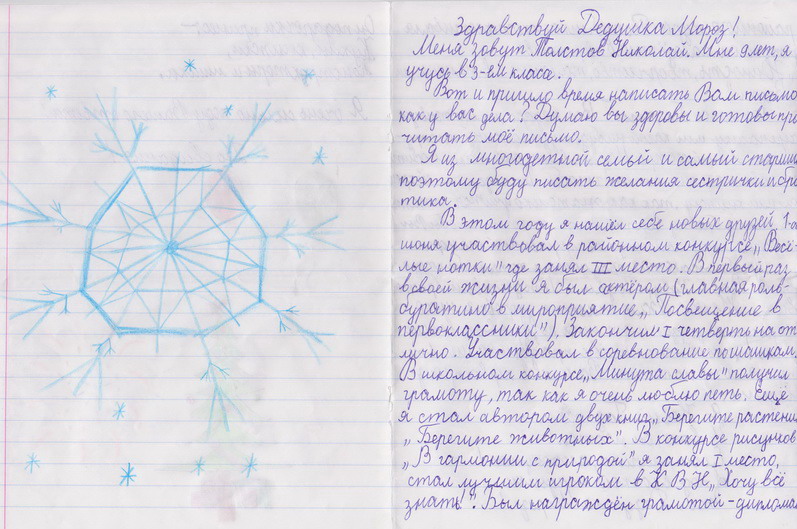 Здравствуй Дедушка Мороз!
Меня зовут Толстов Николай. Мне 9 лет, я
учусь в 3-ем класса.
Вот и пришло время написать Вам письмо
как у вас дела? Думаю вы здоровы и готовы про
читать моё письмо.
Я из многодетной семьй и самый старши
поэтому буду писать желания сестрички и бра
тика.
В этом году я нашёл себе новых друзей, 1-о
июня участвовал в районном конкурсе „Весё-
лые нотки" где занял III место. В первый раз
в своей жизни я был актёром (главная роль-
буратино в мироприятие „Посвещение в
первоклассники"). Закончил I четверть на от
лично. Участвовал в соревнование по шашкам.
В школьном конкурсе „Минута славы" получил
грамоту, так как я очень люблю петь. Ещё
я стал автором двух книг „Берегите растени
„Берегите животных". В конкурсе рисунков
„В гармонии с природой" я занял I место,
стал лучшим игроком в К В Н „Хочу всё
знать!". Был награждён грамотой - диплома